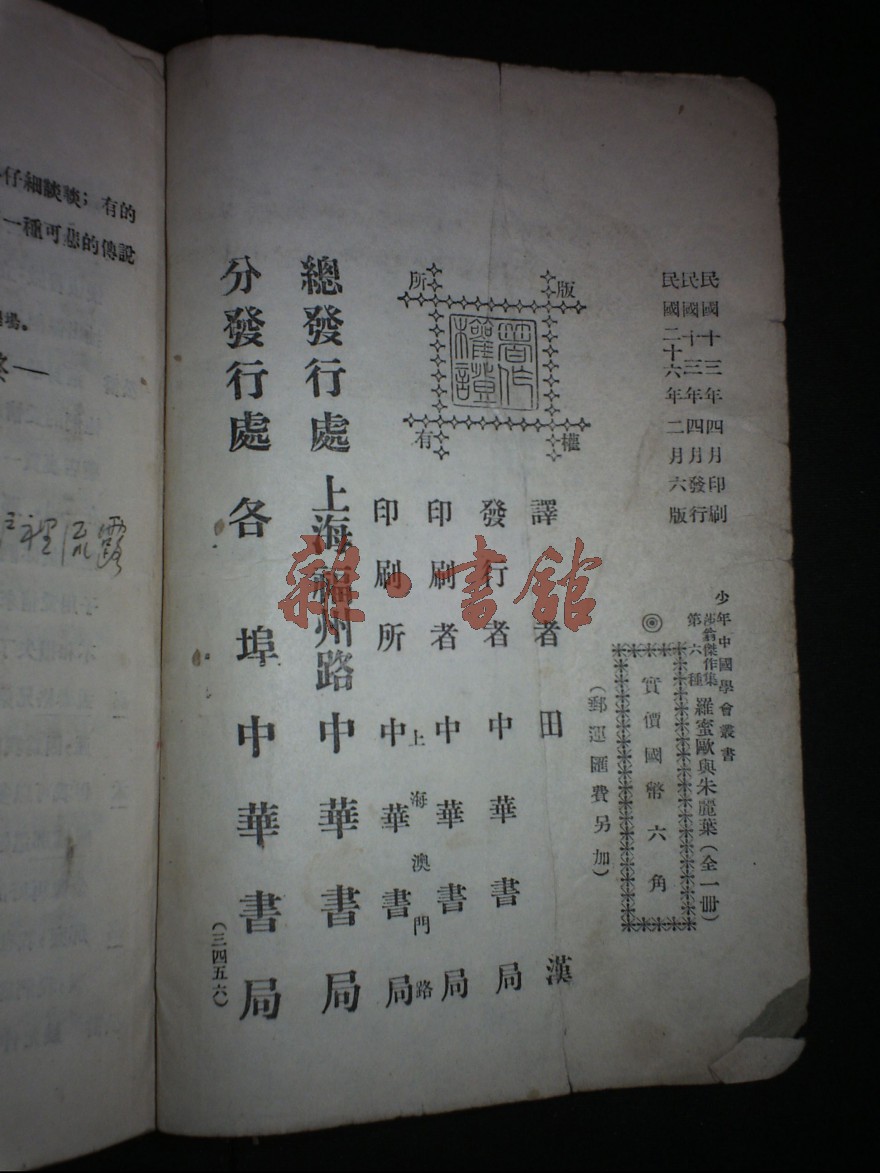 民國十三年四月印刷
民國十三年四月發行
民國二十六年二月六版
少年中國學會叢書
莎翁傑作集
第六種
羅蜜歐與朱麗葉(全一冊)
◎
實價國幣六角
(郵運匯費另加)
版權所有
著作權證
譯者 田漢
發行者 中華書局
印刷者 中華書局
上海澳門路
印刷所 中華書局
總發行處 上海福州路 中華書局
分發行處 各埠 中華書局
(三四五六)
雜·書館
仔細談談;有的
一種可悲的傳說
流露